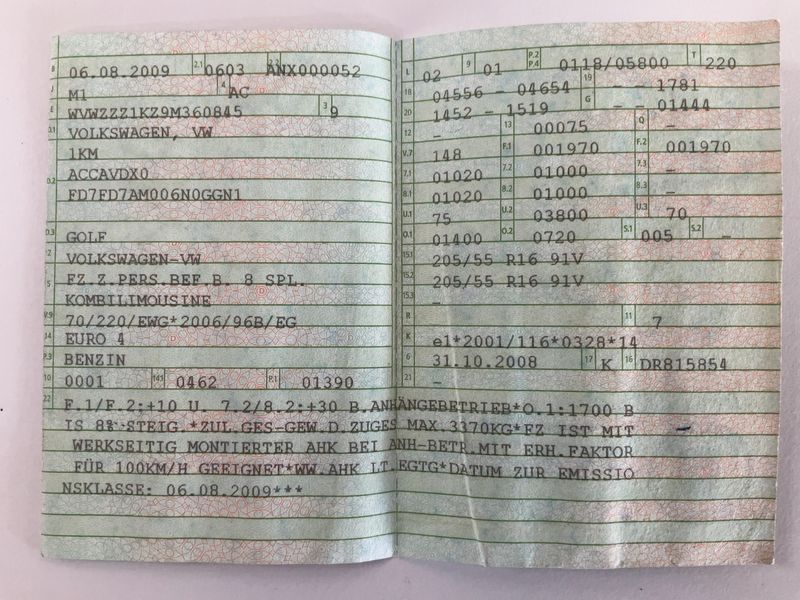 B 06.08.2009 2.1 0603 2.2 ANX000052
J M1 4 AC
E WVWZZZ1KZ9M360845 3 9
D.1 VOLKSWAGEN, VW
1KM
D.2 ACCAVDX0
FD7FD7AM006N0GGN1
D.3 GOLF
2 VOLKSWAGEN-VW
5 FZ.Z.PERS.BEF.B. 8 SPL.
KOMBILIMOUSINE
V.9 70/220/EWG*2006/96B/EG
14 EURO 4
P.3 BENZIN
10 0001 14.1 0462 P.1 01390
L 02 9 01 P.2 P.4 0118/05800 T 220
18 04556 - 04654 19 - - 1781
20 1452 - 1519 G - - 01444
12 - 13 00075 Q -
V.7 148 F.1 001970 F.2 001970
7.1 01020 7.2 01000 7.3 -
8.1 01020 8.2 01000 8.3 -
U.1 75 U.2 03800 U.3 70
O.1 01400 O.2 0720 S.1 005 S.2 -
15.1 205/55 R16 91V
15.2 205/55 R16 91V
15.3 -
R 11 7
K e1*2001/116*0328*14
6 31.10.2008 17 K 16 DR815854
21 -
22 F.1/F.2:+10 U. 7.2/8.2:+30 B.ANHÄNGEBETRIEB*O.1:1700 B
IS 8% STEIG.*ZUL.GES-GEW.D.ZUGES MAX.3370KG*FZ IST MIT
WERKSEITIG MONTIERTER AHK BEI ANH-BETR.MIT ERH.FAKTOR
FÜR 100KM/H GEEIGNET*WW.AHK LT.EGTG*DATUM ZUR EMISSIO
NSKLASSE: 06.08.2009***